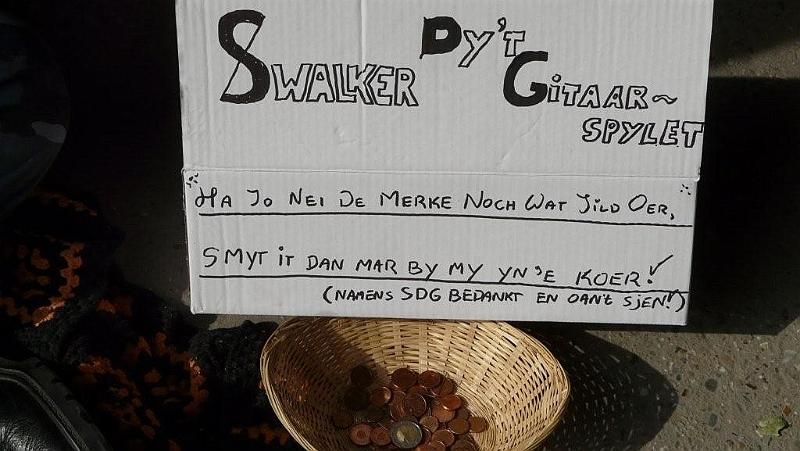 SWALKER DY'T GITAAR~
SPYLET
HA JO NEI DE MERKE NOCH WAT JILD OER,
SMYT IT DAN MAR BY MY YN 'E KOER!
(NAMENS SDG BEDANKT EN OAN'T SJEN!)